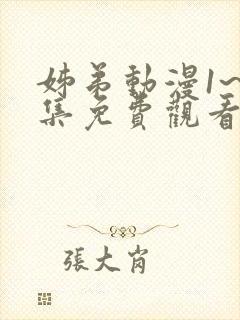 姊弟動漫1~
集免費觀看
張大肖